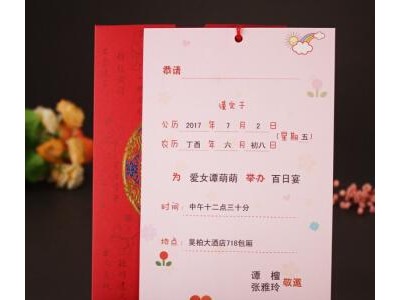 恭请
谨定于
公历 2017 年 7 月 2 日
(星期 五)
农历 丁酉 年 六 月 初八 日
为 爱女谭萌萌 举办 百日宴
时间: 中午十二点三十分
地点: 昊柏大酒店718包厢
谭 檀
张雅玲 敬邀